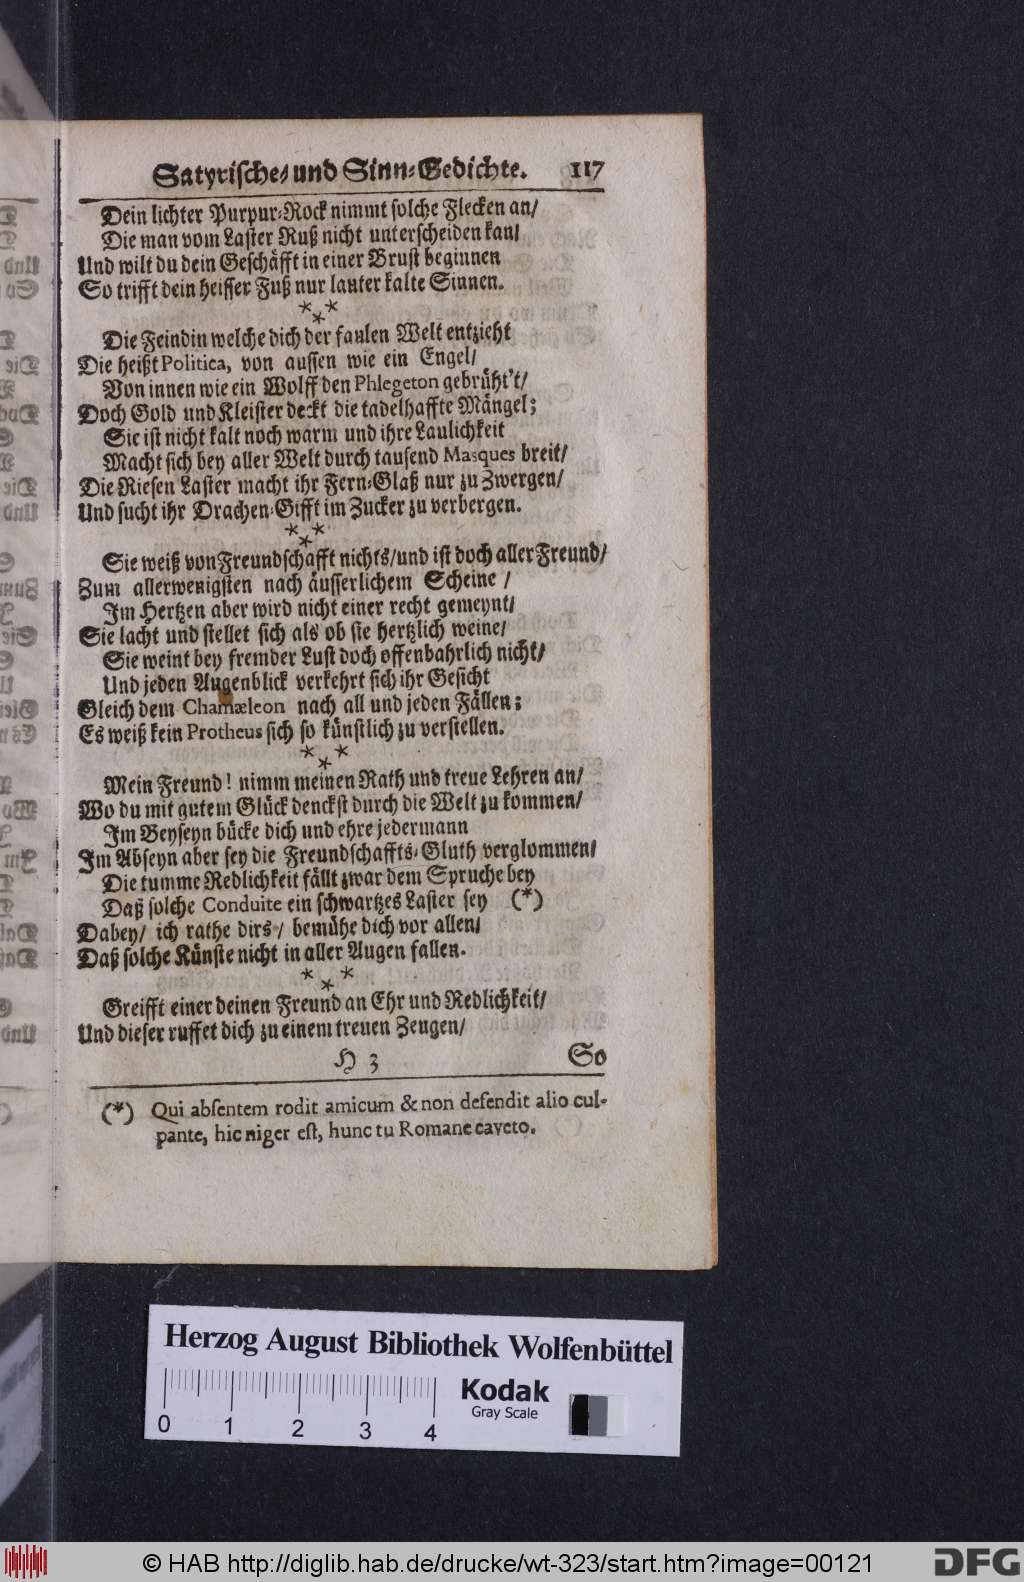 Satyrische/ und Sinn-Gedichte. 117
Dein lichter Purpur-Rock nimmt solche Flecken an/
Die man vom Laster Ruß nicht unterscheiden kan/
Und wilt du dein Geschäfft in einer Brust beginnen
So trifft dein heisser Fuß nur lauter kalte Sinnen.
* * *
Die Feindin welche dich der faulen Welt entzieht
Die heißt Politica, von aussen wie ein Engel/
Von innen wie ein Wolff den Phlegeton gebrüht't/
Doch Gold und Kleister deckt die tadelhaffte Mängel;
Sie ist nicht kalt noch warm und ihre Laulichkeit
Macht sich bey aller Welt durch tausend Masques breit/
Die Riesen Laster macht ihr Fern-Glaß nur zu Zwergen/
Und sucht ihr Drachen-Gifft im Zucker zu verbergen.
* * *
Sie weiß von Freundschafft nichts/und ist doch aller Freund/
Zum allerwenigsten nach äusserlichem Scheine /
Im Hertzen aber wird nicht einer recht gemeynt/
Sie lacht und stellet sich als ob sie hertzlich weine/
Sie weint bey fremder Lust doch offenbahrlich nicht/
Und jeden Augenblick verkehrt sich ihr Gesicht
Gleich dem Chamæleon nach all und jeden Fällen;
Es weiß kein Protheus sich so künstlich zu verstellen.
* * *
Mein Freund! nimm meinen Rath und treue Lehren an/
Wo du mit gutem Glück denckst durch die Welt zu kommen/
Im Beyseyn bücke dich und ehre jedermann
Im Abseyn aber sey die Freundschaffts-Gluth verglommen/
Die tumme Redlichkeit fällt zwar dem Spruche bey
Daß solche Conduite ein schwartzes Laster sey (*)
Dabey/ ich rathe dirs/ bemühe dich vor allen/
Daß solche Künste nicht in aller Augen fallen.
* * *
Greifft einer deinen Freund an Ehr und Redlichkeit/
Und dieser ruffet dich zu einem treuen Zeugen/
H 3 So
(*) Qui absentem rodit amicum & non defendit alio cul-
pante, hic niger est, hunc tu Romane caveto.
Herzog August Bibliothek Wolfenbüttel
Kodak
Gray Scale
0 1 2 3 4
© HAB http://diglib.hab.de/drucke/wt-323/start.htm?image=00121
DFG